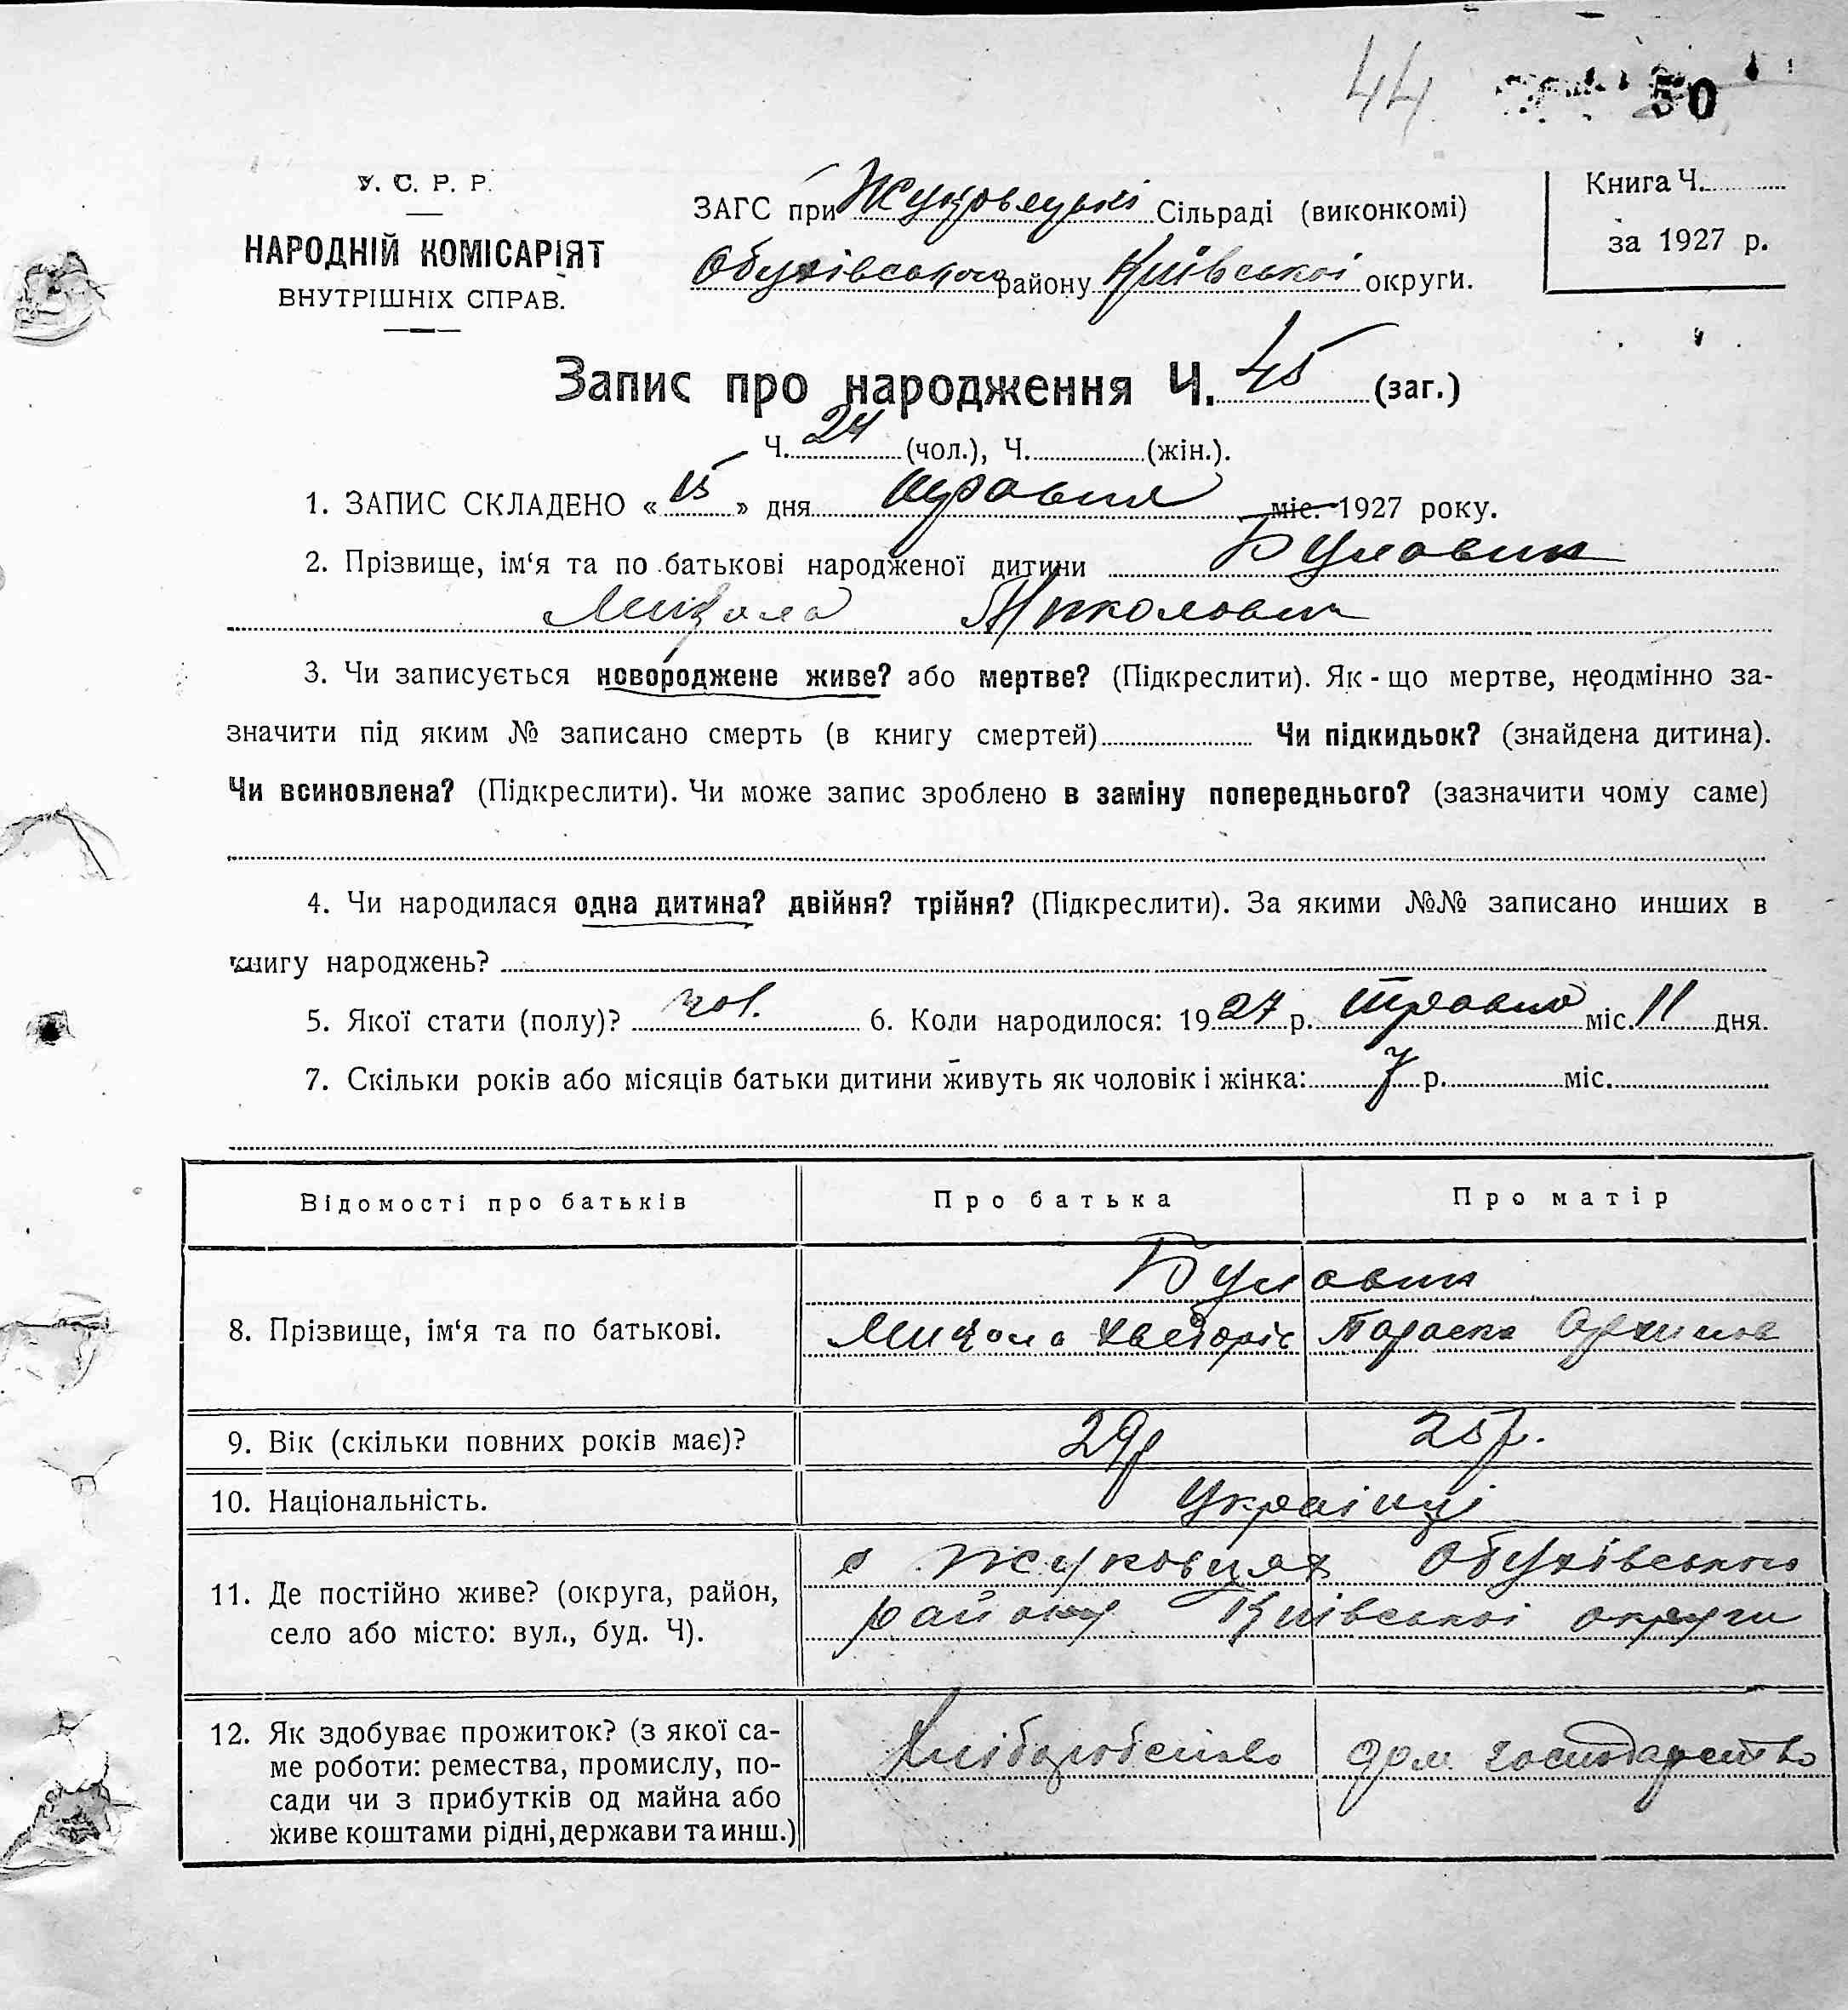 44 50
У. С. Р. Р.
НАРОДНІЙ КОМІСАРІЯТ
ВНУТРІШНІХ СПРАВ.
ЗАГС при Жуковецькі Сільраді (виконкомі)
Обухівського району Київської округи.
Книга Ч.
за 1927 р.
Запис про народження Ч. 45 (заг.)
Ч. 24 (чол.), Ч. (жін.).
1. ЗАПИС СКЛАДЕНО « 15 » дня травня міс. 1927 року.
2. Прізвище, ім‘я та по батькові народженої дитини Буловин
Микола Николович
3. Чи записується новороджене живе? або мертве? (Підкреслити). Як-що мертве, неодмінно за-
значити під яким № записано смерть (в книгу смертей) Чи підкидьок? (знайдена дитина).
Чи всиновлена? (Підкреслити). Чи може запис зроблено в заміну попереднього? (зазначити чому саме)
4. Чи народилася одна дитина? двійня? трійня? (Підкреслити). За якими №№ записано инших в
книгу народжень?
5. Якої стати (полу)? чол. 6. Коли народилося: 1927 р. травня міс. 11 дня.
7. Скільки років або місяців батьки дитини живуть як чоловік і жінка: 7 р. міс.
Відомості про батьків Про батька Про матір
Буловин
8. Прізвище, ім‘я та по батькові. Микола Хведоріс Параска Архипов
9. Вік (скільки повних років має)? 29р 25р.
10. Національність. Українці
11. Де постійно живе? (округа, район,
село або місто: вул., буд. Ч).
с Жуковцях Обухівського
району Київської округи
12. Як здобуває прожиток? (з якої са-
ме роботи: ремества, промислу, по-
сади чи з прибутків од майна або
живе коштами рідні, держави та инш.)
Хліборобство дом. господарство